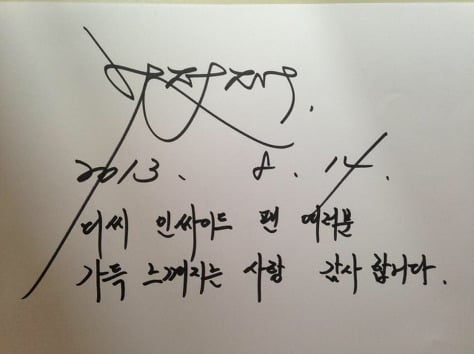 2013. 8. 14.
디씨 인싸이드 팬 여러분
가득 느껴지는 사랑 감사합니다.